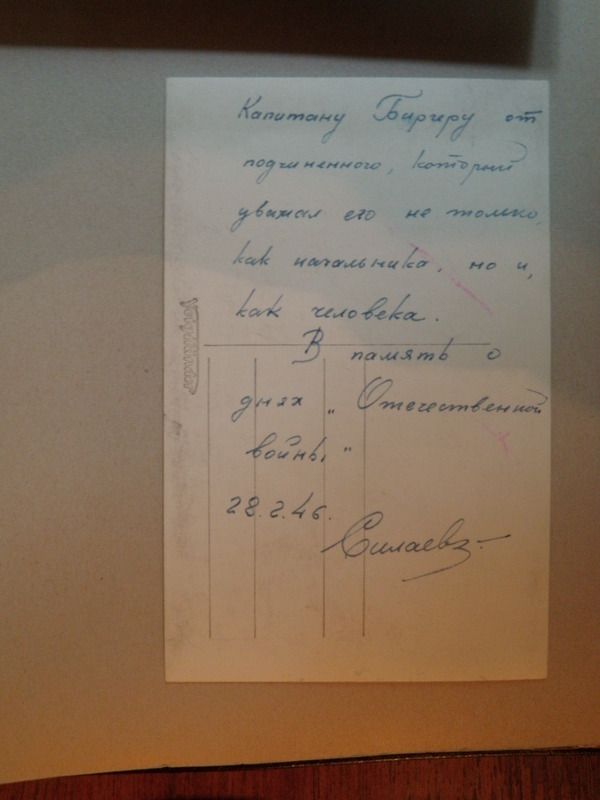 Капитану Биргеру от
подчиненного, который
уважал его не только,
как начальника, но и,
как человека.
В память о
днях „Отечественной
войны"
28.2.46.
Силаев
Voigtländer